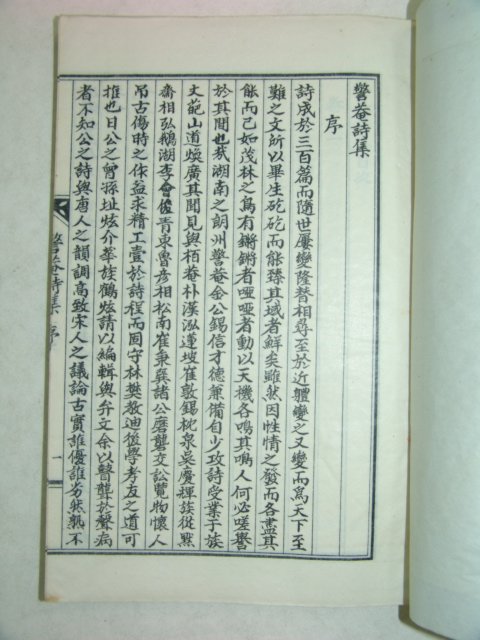 警菴詩集
序
詩成於三百篇而隨世屢變隆替相尋至於近軆變之又變而爲天下至
難之文所以畢生矻矻而能臻其域者鮮矣雖然因性情之發而各盡其
能而已如茂林之鳥有鏘鏘者啞啞者動以天機各鳴其鳴人何必嗟譽
於其間也哉湖南之朗州警菴金公錫信才德兼備自少攻詩受業于族
丈葩山道煥廣其聞見與栢菴朴漢泓蓮坡崔敦錫枕泉吳慶輝族從黙
齋相弘鵝湖李會儁靑東魯彦相松南崔秉巽諸公磨礱交訟覽物懷人
吊古傷時之作益求精工壹於詩程而固守林樊敎迪後學孝友之道可
推也日公之曾孫址炫介華族鶴炫請以編輯與弁文余以瞽聾於聲病
者不知公之詩與唐人之韻調高致宋人之議論古實誰優誰劣然孰不
警菴詩集 序 一